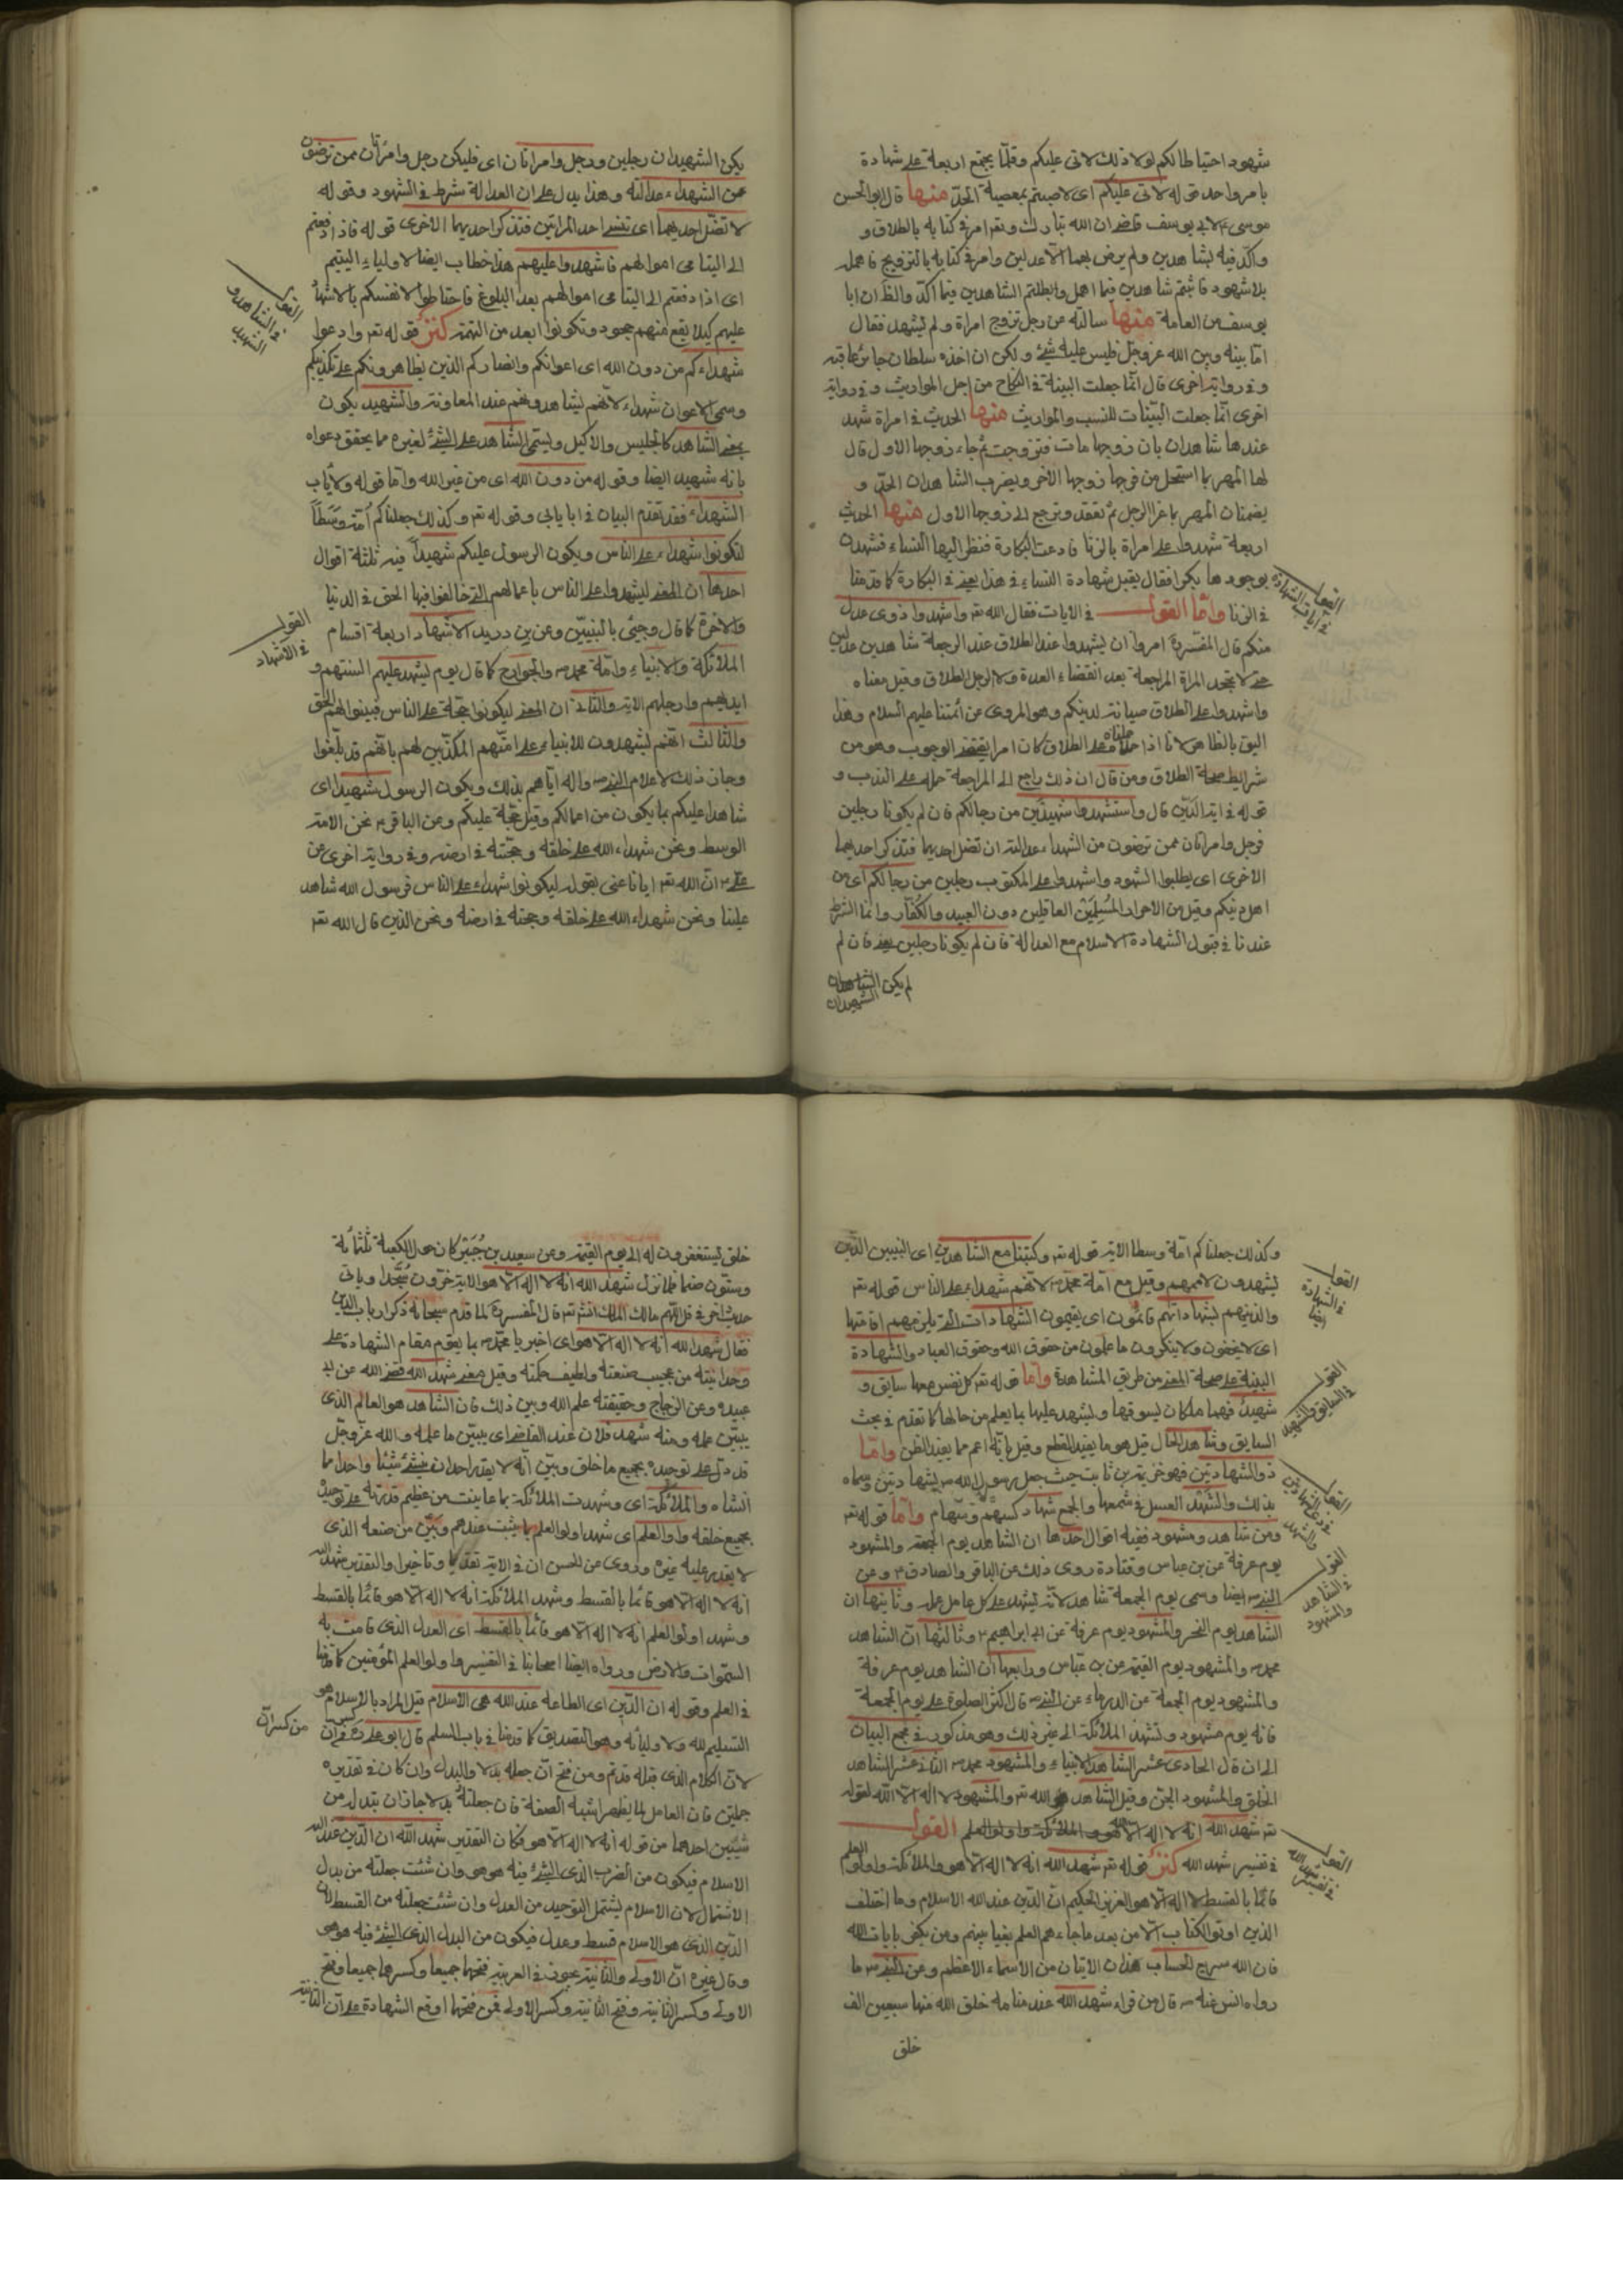 شهود احتياطا لكم لولا ذلك لاتى عليكم وقلما يجتمع اربعة على شهادة
بامر واحد قوله لاتى عليكم اى لاصبتم بمعصية الحد منها قال ابو الحسن
موسى ع لابى يوسف قاضى ان الله تبارك وتعم امر فى كتابه بالطلاق و
واكد فيه بشاهدين ولم يرض بهما الا عدلين وامر فى كتابه بالتزويج فاهمله
بلا شهود فاثبتم شاهدين فيما اهمل وابطلتم الشاهدين فيما اكد والظ ان ابا
يوسف من العامة منها سالته عن رجل تزوج امراة ولم يشهد فقال
اما بينه وبين الله عز وجل فليس عليه شئ ولكن ان اخذه سلطان جائر عاقبه
وفى رواية اخرى قال انما جعلت البينة فى النكاح من اجل المواريث وفى رواية
اخرى انما جعلت البينات للنسب والمواريث منها الحديث فى امراة شهد
عندها شاهدان بان زوجها مات فتزوجت ثم جاء زوجها الاول قال
لها المهر بما استحل من فرجها زوجها الاخر ويضرب الشاهدان الحد و
يضمنان المهر بما غرا الرجل ثم تعتد وترجع الى زوجها الاول منها الحديث
اربعة شهدوا على امراة بالزنا فادعت البكارة فنظر اليها النساء فشهدن
بوجودها بكرا فقال يقبل شهادة النساء فى هذا يعنى فى البكارة كما قدمنا
فى الزنا واما القول فى الايات فقال الله تعم واشهدوا ذوى عدل
القول فى ايات الشهادة
منكم قال المفسرة امروا ان يشهدوا عند الطلاق عند الرجعة شاهدين عدلين
حتى لا يجحد المراة المراجعة بعد انقضاء العدة ولا الرجل الطلاق وقيل معناه
واشهدوا على الطلاق صيانة لدينكم وهو المروى عن ائمتنا عليهم السلام وهذا
اليق بالظاهر لانا اذا حملناه على الطلاق كان امرا يقتضى الوجوب وهو من
شرايط صحة الطلاق ومن قال ان ذلك راجع الى المراجعة حمله على الندب و
قوله فى اية الدين قال واستشهدوا شهيدين من رجالكم فان لم يكونا رجلين
فرجل وامراتان ممن ترضون من الشهداء عدالته ان تضل احديهما فتذكر احديهما
الاخرى اى يطلبوا الشهود واشهدوا على المكتوب رجلين من رجالكم اى من
اهل دينكم وقيل من الاحرار المسلمين العاقلين دون العبيد والكفار وانما الشرط
عندنا فى قبول الشهادة الاسلام مع العدالة فان لم يكونا رجلين يعنى فان لم
لم يكن الشاهدان
الشهيدان
يكن الشهيدان رجلين ورجل وامراتان اى فليكن رجل وامراتان ممن ترضون
من الشهداء عدالته وهذا يدل على ان العدالة شرط فى الشهود وقوله
لا تضل احديهما اى تنسى احد المراتين فتذكر احديهما الاخرى قوله فاذا دفعتم
الى اليتامى اموالهم فاشهدوا عليهم هذا خطاب ايضا لاولياء اليتيم
اى اذا دفعتم الى اليتامى اموالهم بعد البلوغ فاحتاطوا لانفسكم بالاشهاد
القول فى الشاهد و الشهيد
عليهم كيلا يقع منهم جحود وتكونوا ابعد من التهمة كنز قوله تعم وادعوا
شهداءكم من دون الله اى اعوانكم وانصاركم الذين يظاهرونكم على تكذيبكم
وسمى الاعوان شهداء لانهم يشاهدونهم عند المعاونة والشهيد يكون
بمعنى الشاهد كالجليس والاكيل ويسمى الشاهد على الشئ لغيره مما يحقق دعواه
بانه شهيد ايضا وقوله من دون الله اى من غير الله واما قوله ولا ياب
الشهداء فقد تقدم البيان فى ابا يابى وقوله تعم وكذلك جعلناكم امة وسطا
لتكونوا شهداء على الناس ويكون الرسول عليكم شهيدا فيه ثلثة اقوال
احدها ان المعنى ليشهدوا على الناس باعمالهم التى خالفوا فيها الحق فى الدنيا
والاخرة كما قال وجيئ بالنبيين وعن بن دريد الاشهاد اربعة اقسام
القول فى الاشهاد
الملائكة والانبياء وامة محمد ص والجوارح كما قال يوم يشهد عليهم السنتهم و
ايديهم وارجلهم الاية والثانى ان المعنى ليكونوا حجة على الناس فبينوا لهم الحق
والثالث انهم ليشهدون للانبياء على اممهم المكذبين لهم بانهم قد بلغوا
وجاز ذلك لاعلام النبى ص واله اياهم بذلك ويكون الرسول شهيدا اى
شاهدا عليكم بما يكون من اعمالكم وقيل حجة عليكم وعن الباقر ع نحن الامة
الوسط ونحن شهداء الله على خلقه وحجته فى ارضه وفى رواية اخرى عن
على ع ان الله تعم ايانا عنى بقوله ليكونوا شهداء على الناس فرسول الله شاهد
علينا ونحن شهداء الله على خلقه وحجته فى ارضه ونحن الذين قال الله تعم
وكذلك جعلناكم امة وسطا الاية قوله تعم وكتبنا مع الشاهدين اى النبيين الذين
يشهدون لاممهم وقيل مع امة محمد ص لانهم شهداء على الناس قوله تعم
القول فى الشهادة ايضا
والذينهم بشهاداتهم قائمون اى يقيمون الشهادات التى يلزمهم اقامتها
اى لا يخفون ولا ينكرون ما علمون من حقوق الله وحقوق العباد والشهادة
البينة على صحة المعنى من طريق المشاهدة واما قوله تعم كل نفس معها سايق و
القول فى السايق والشهيد
شهيد فهما ملكان يسوقها ويشهد عليها بما يعلم من حالها كما تقدم فى بحث
السايق وشاهد الحال قيل هو ما يفيد القطع وقيل بانه اعم مما يفيد الظن واما
ذو الشهادتين فهو خزيمة بن ثابت حيث جعل رسول الله ص شهادتين وسماه
القول فى ذى الشهادتين والشهد
بذلك والشهد العسل فى شمعها والجمع شهاد كسهم وسهام واما قوله تعم
ومن شاهد ومشهود ففيه اقوال احدها ان الشاهد يوم الجمعة والمشهود
يوم عرفة عن بن عباس وقتادة روى ذلك عن الباقر والصادق ع وعن
القول فى الشاهد والمشهود
النبى ص ايضا وسمى يوم الجمعة شاهد لانه يشهد على كل عامل عمله وثانيها ان
الشاهد يوم النحر والمشهود يوم عرفة عن ابراهيم ع وثالثها ان الشاهد
محمد ص والمشهود يوم القيمة عن بن عباس ورابعها ان الشاهد يوم عرفة
والمشهود يوم الجمعة عن الدرداء عن النبى ص قال اكثر الصلوة على يوم الجمعة
فانه يوم مشهود وتشهد الملائكة الى غير ذلك وهو مذكور فى مجمع البيان
الى ان قال الحادى عشر الشاهد الانبياء والمشهود محمد ص الثانى عشر الشاهد
الخلق والمشهود الجن وقيل الشاهد هو الله تعم والمشهود لا اله الا الله لقوله
تعم شهد الله انه لا اله الا هو والملائكة واولو العلم القول
القول فى تفسير شهد الله
فى تفسير شهد الله كنز قوله تعم شهد الله انه لا اله الا هو والملائكة واولوا العلم
قائما بالقسط لا اله الا هو العزيز الحكيم ان الدين عند الله الاسلام وما اختلف
الذين اوتوا الكتاب الا من بعد ما جاءهم العلم بغيا بينهم ومن يكفر بايات الله
فان الله سريع الحساب هذان الايتان من الاسماء الاعظم وعن النبى ص ما
رواه انس عنه ص قال من قراء شهد الله عند منامه خلق الله منها سبعين الف
خلق
خلق يستغفرون له الى يوم القيمة وعن سعيد بن جبير كان حول الكعبة ثلثمائة
وستون صنما فلما نزل شهد الله انه لا اله الا هو الاية خرون سجدا وياتى
حديث اخر فى قل اللهم مالك الملك انش تعم قال المفسرة لما قدم سبحانه ذكر ارباب الدين
فقال شهد الله انه لا اله الا هو اى اخبر يا محمد ص بما يقوم مقام الشهادة على
وحدانيته من عجيب صنعته ولطيف حكمته وقيل معنى شهد الله قضى الله عن ابى
عبيده وعن الزجاج وحقيقته علم الله وبين ذلك فان الشاهد هو العالم الذى
يبين علمه ومنه شهد فلان عند القاضى اى يبين ما علمه والله عز وجل
قد دل على توحيده بجميع ما خلق وبين انه لا يقدر احد ان ينشئ شيئا واحدا مما
انشاه والملائكة اى وشهدت الملائكة بما عاينت من عظيم قدرته على توحيده
بجميع خلقه واولوا العلم اى شهد اولوا العلم بما يثبت عندهم وبين من صنعه الذى
لا يقدر عليه غيره وروى عن الحسن ان فى الاية تقديما وتاخيرا والتقدير شهد الله
انه لا اله الا هو قائما بالقسط وشهد الملائكة انه لا اله الا هو قائما بالقسط
وشهد اولوا العلم انه لا اله الا هو قائما بالقسط اى العدل الذى قامت به
السموات والارض ورواه ايضا اصحابنا فى التفسير واولوا العلم المؤمنين كما قدمنا
فى العلم وقوله ان الدين اى الطاعة عند الله هى الاسلام قيل المراد بالاسلام هو
من كسر ان
التسليم لله ولاوليائه وهو التصديق كما قدمنا فى باب السلم قال ابو على
لان الكلام الذى قبله قد تم ومن فتح ان جعله بدلا والبدل وان كان فى تقديره
جملتين فان العامل لما يظهر اشبه الصفة فان جعلته بدلا جاز ان تبدله من
شيئين احدهما من قوله انه لا اله الا هو فكان التقدير شهد الله ان الدين عند الله
الاسلام فيكون من الضرب الذى الشئ فيه هو هو وان شئت جعلته من بدل
الاشتمال لان الاسلام يشتمل التوحيد من العدل وان شئت جعلته من القسط لان
الدين الذى هو الاسلام قسط وعدل فيكون من البدل الذى الشئ فيه هو هو
وقال غيره ان الاولى والثانية يجوز فى العربية فتحها جميعا وكسرهما جميعا وفتح
الاولى وكسر الثانية وفتح الثانية وكسر الاولى فمن فتحها اوقع الشهادة على ان الثانية